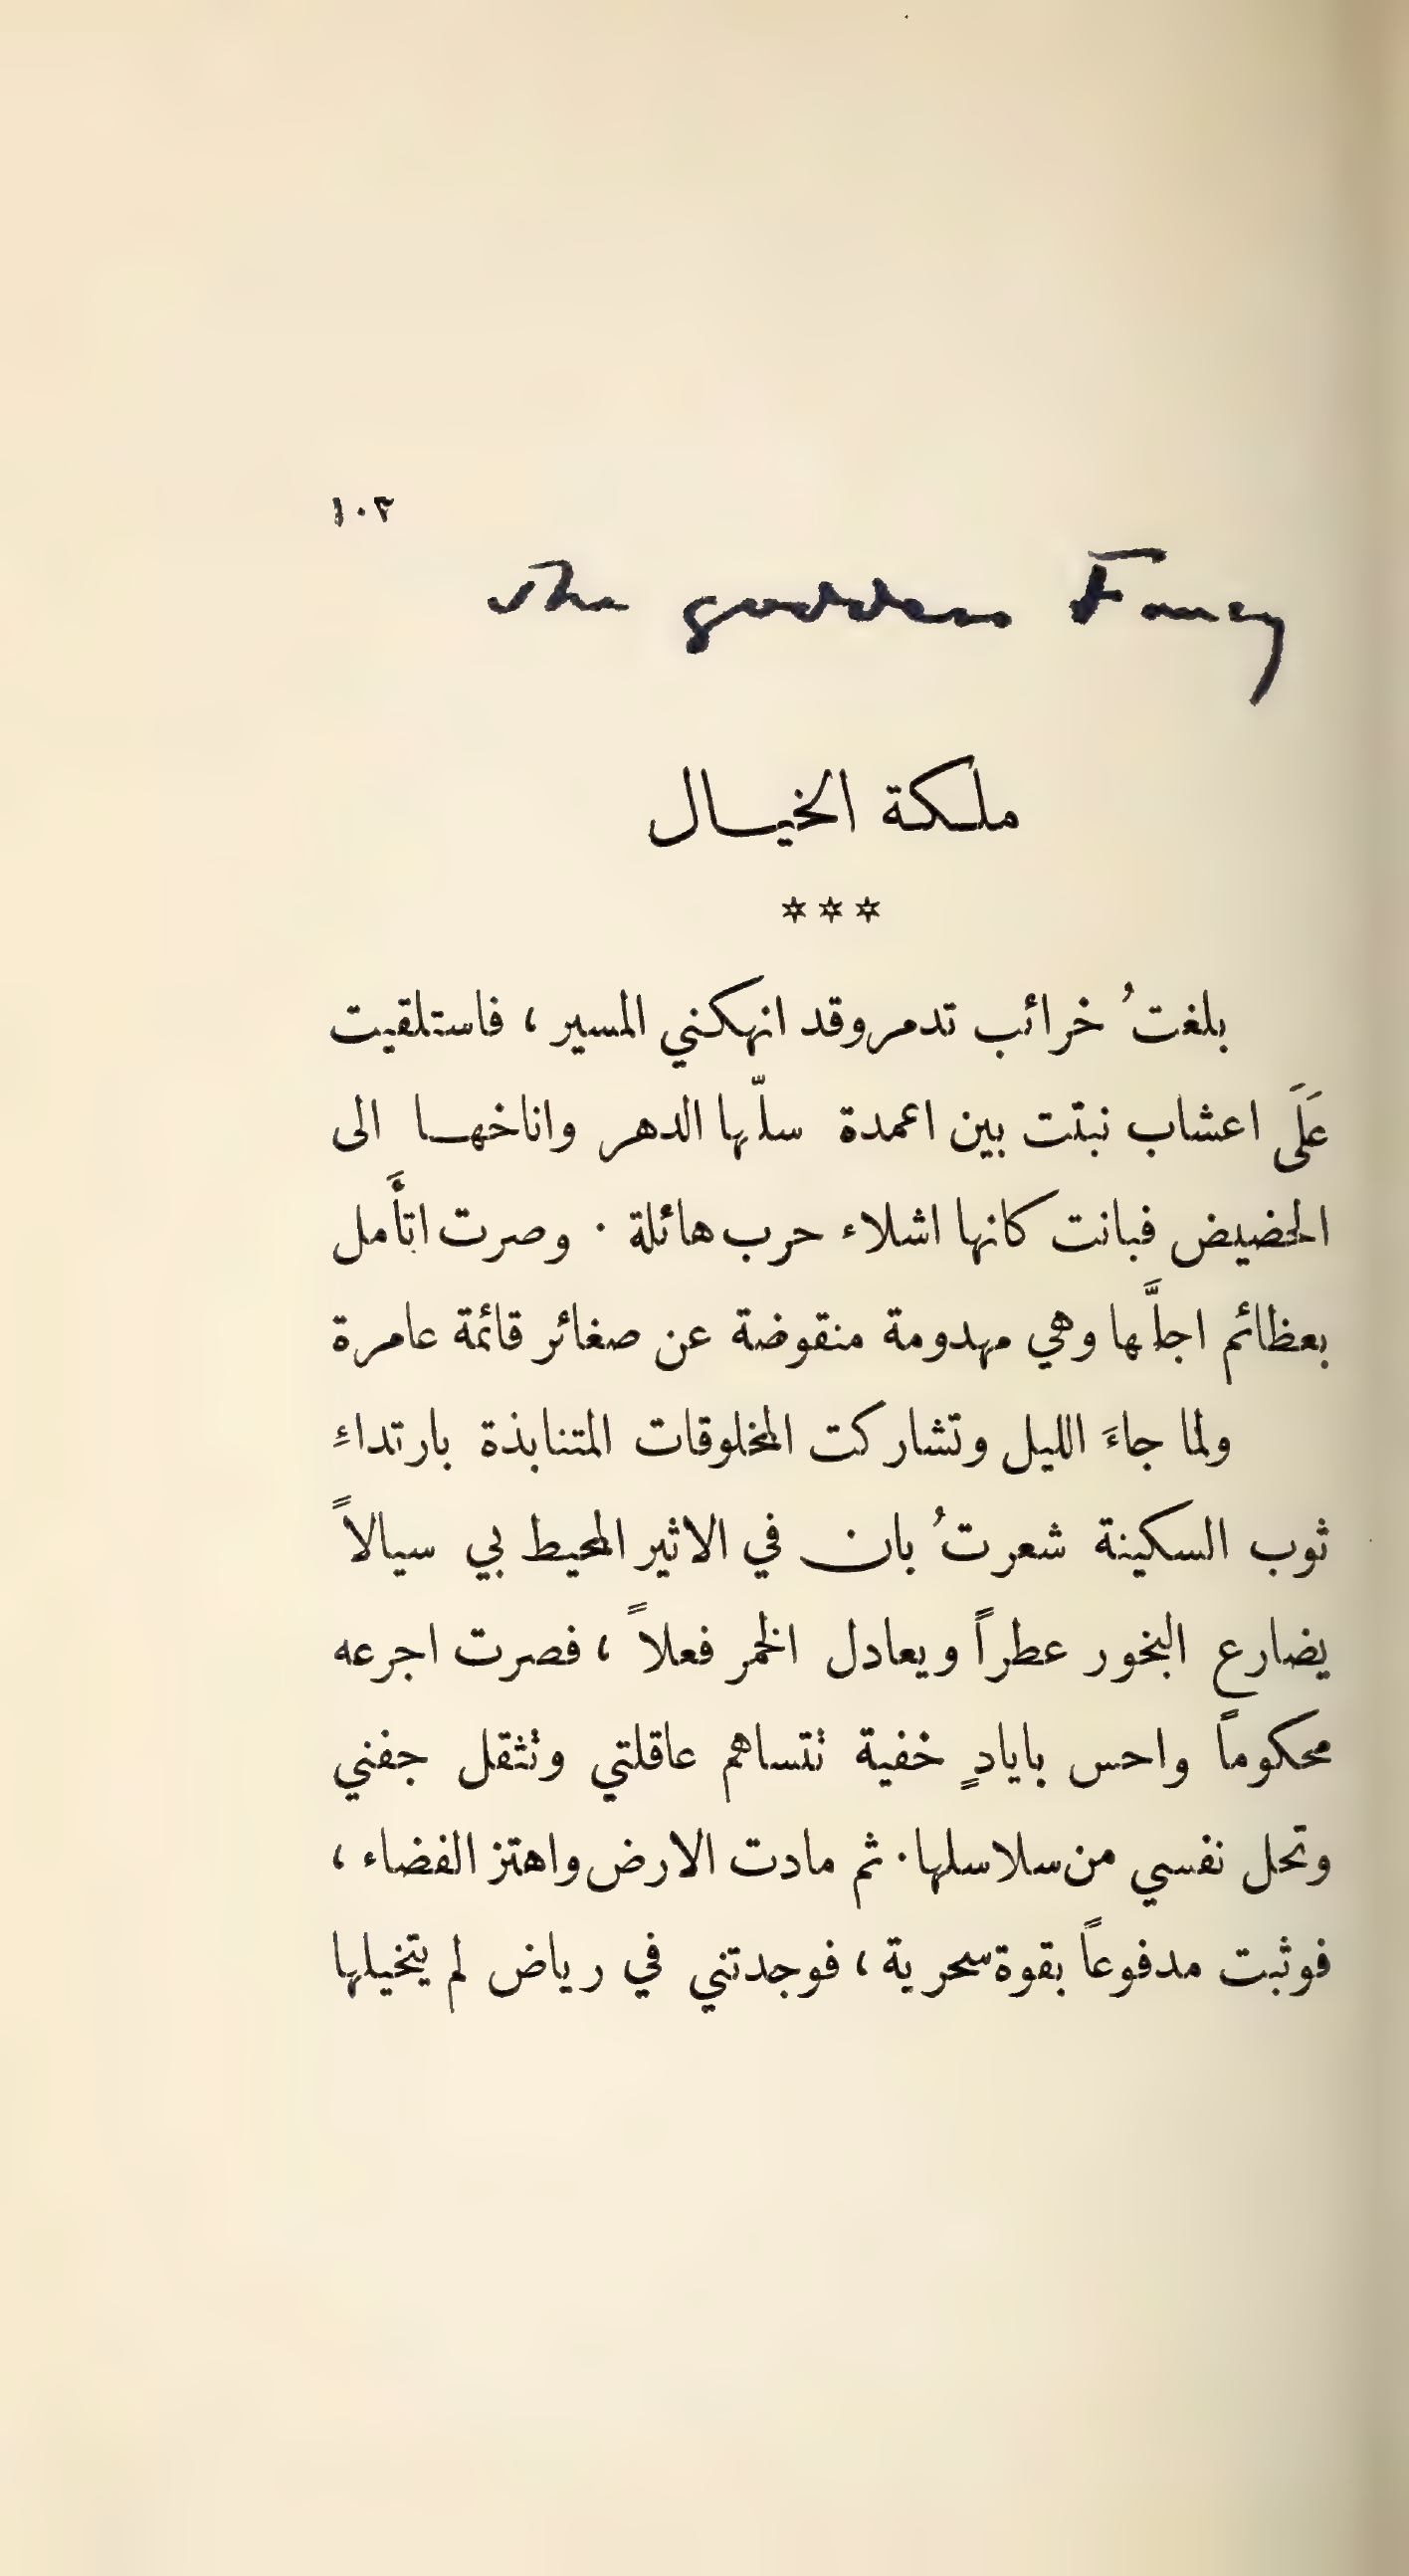 ١٠٣
The goddess Fancy
ملكة الخيال
***
بلغتُ خرائب تدمر وقد انهكني المسير ، فاستلقيت
عَلَى اعشاب نبتت بين اعمدة سلّها الدهر واناخها الى
الحضيض فبانت كانها اشلاء حرب هائلة . وصرت اتأَمل
بعظائم اجلَّها وهي مهدومة منقوضة عن صغائر قائمة عامرة
ولما جاءَ الليل وتشاركت المخلوقات المتنابذة بارتداءِ
ثوب السكينة شعرتُ بان في الاثير المحيط بي سيالاً
يضارع البخور عطراً ويعادل الخمر فعلاً ، فصرت اجرعه
محكوماً واحس بايادٍ خفية تتساهم عاقلتي وتثقل جفني
وتحل نفسي من سلاسلها . ثم مادت الارض واهتز الفضاء ،
فوثبت مدفوعاً بقوة سحرية ، فوجدتني في رياض لم يتخيلها